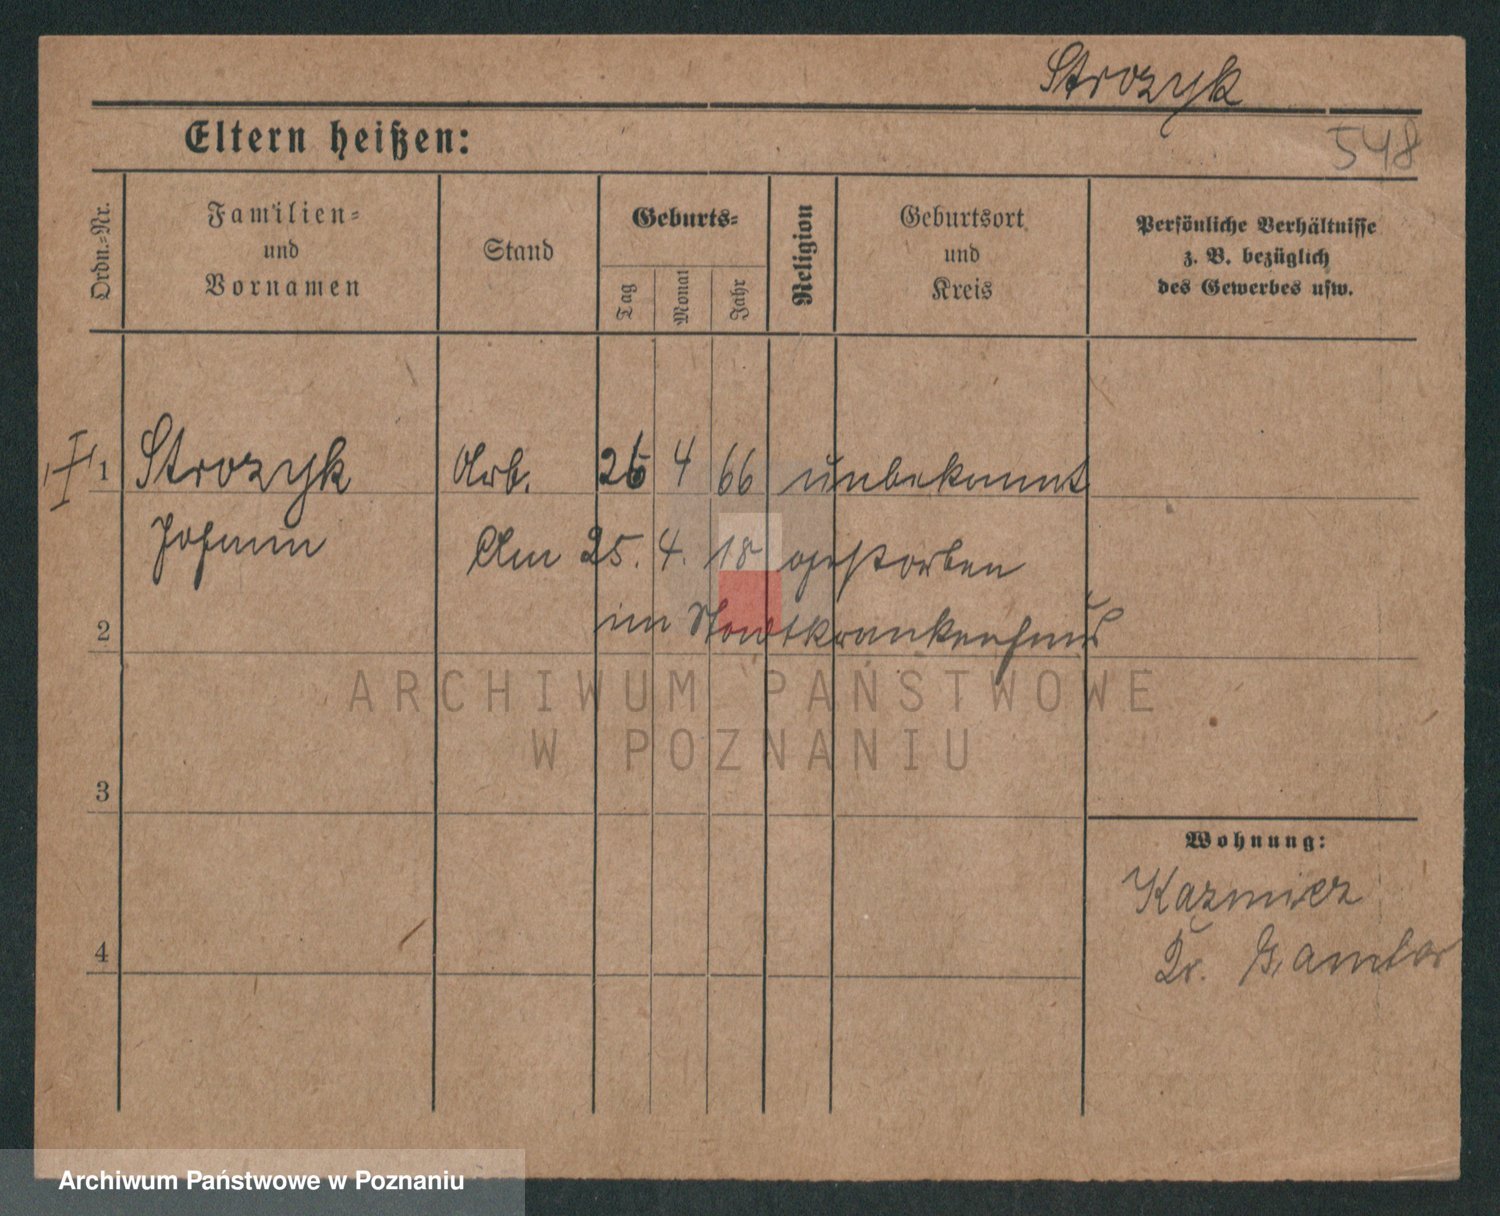 Strozyk
Eltern heißen:
548
Ordn.-Nr.
Familien-
und
Vornamen
Stand
Geburts-
Tag
Monat
Jahr
Religion
Geburtsort
und
Kreis
Persönliche Verhältnisse
z. B. bezüglich
des Gewerbes usw.
1 Strozyk Arb. 26 4 66 unbekannt
Johann Am 25. 4. 18 gestorben
2 im Stadtkrankenhaus
ARCHIWUM PAŃSTWOWE
W POZNANIU
3
Wohnung:
Kazmierz
4
Kr. Samter
Archiwum Państwowe w Poznaniu